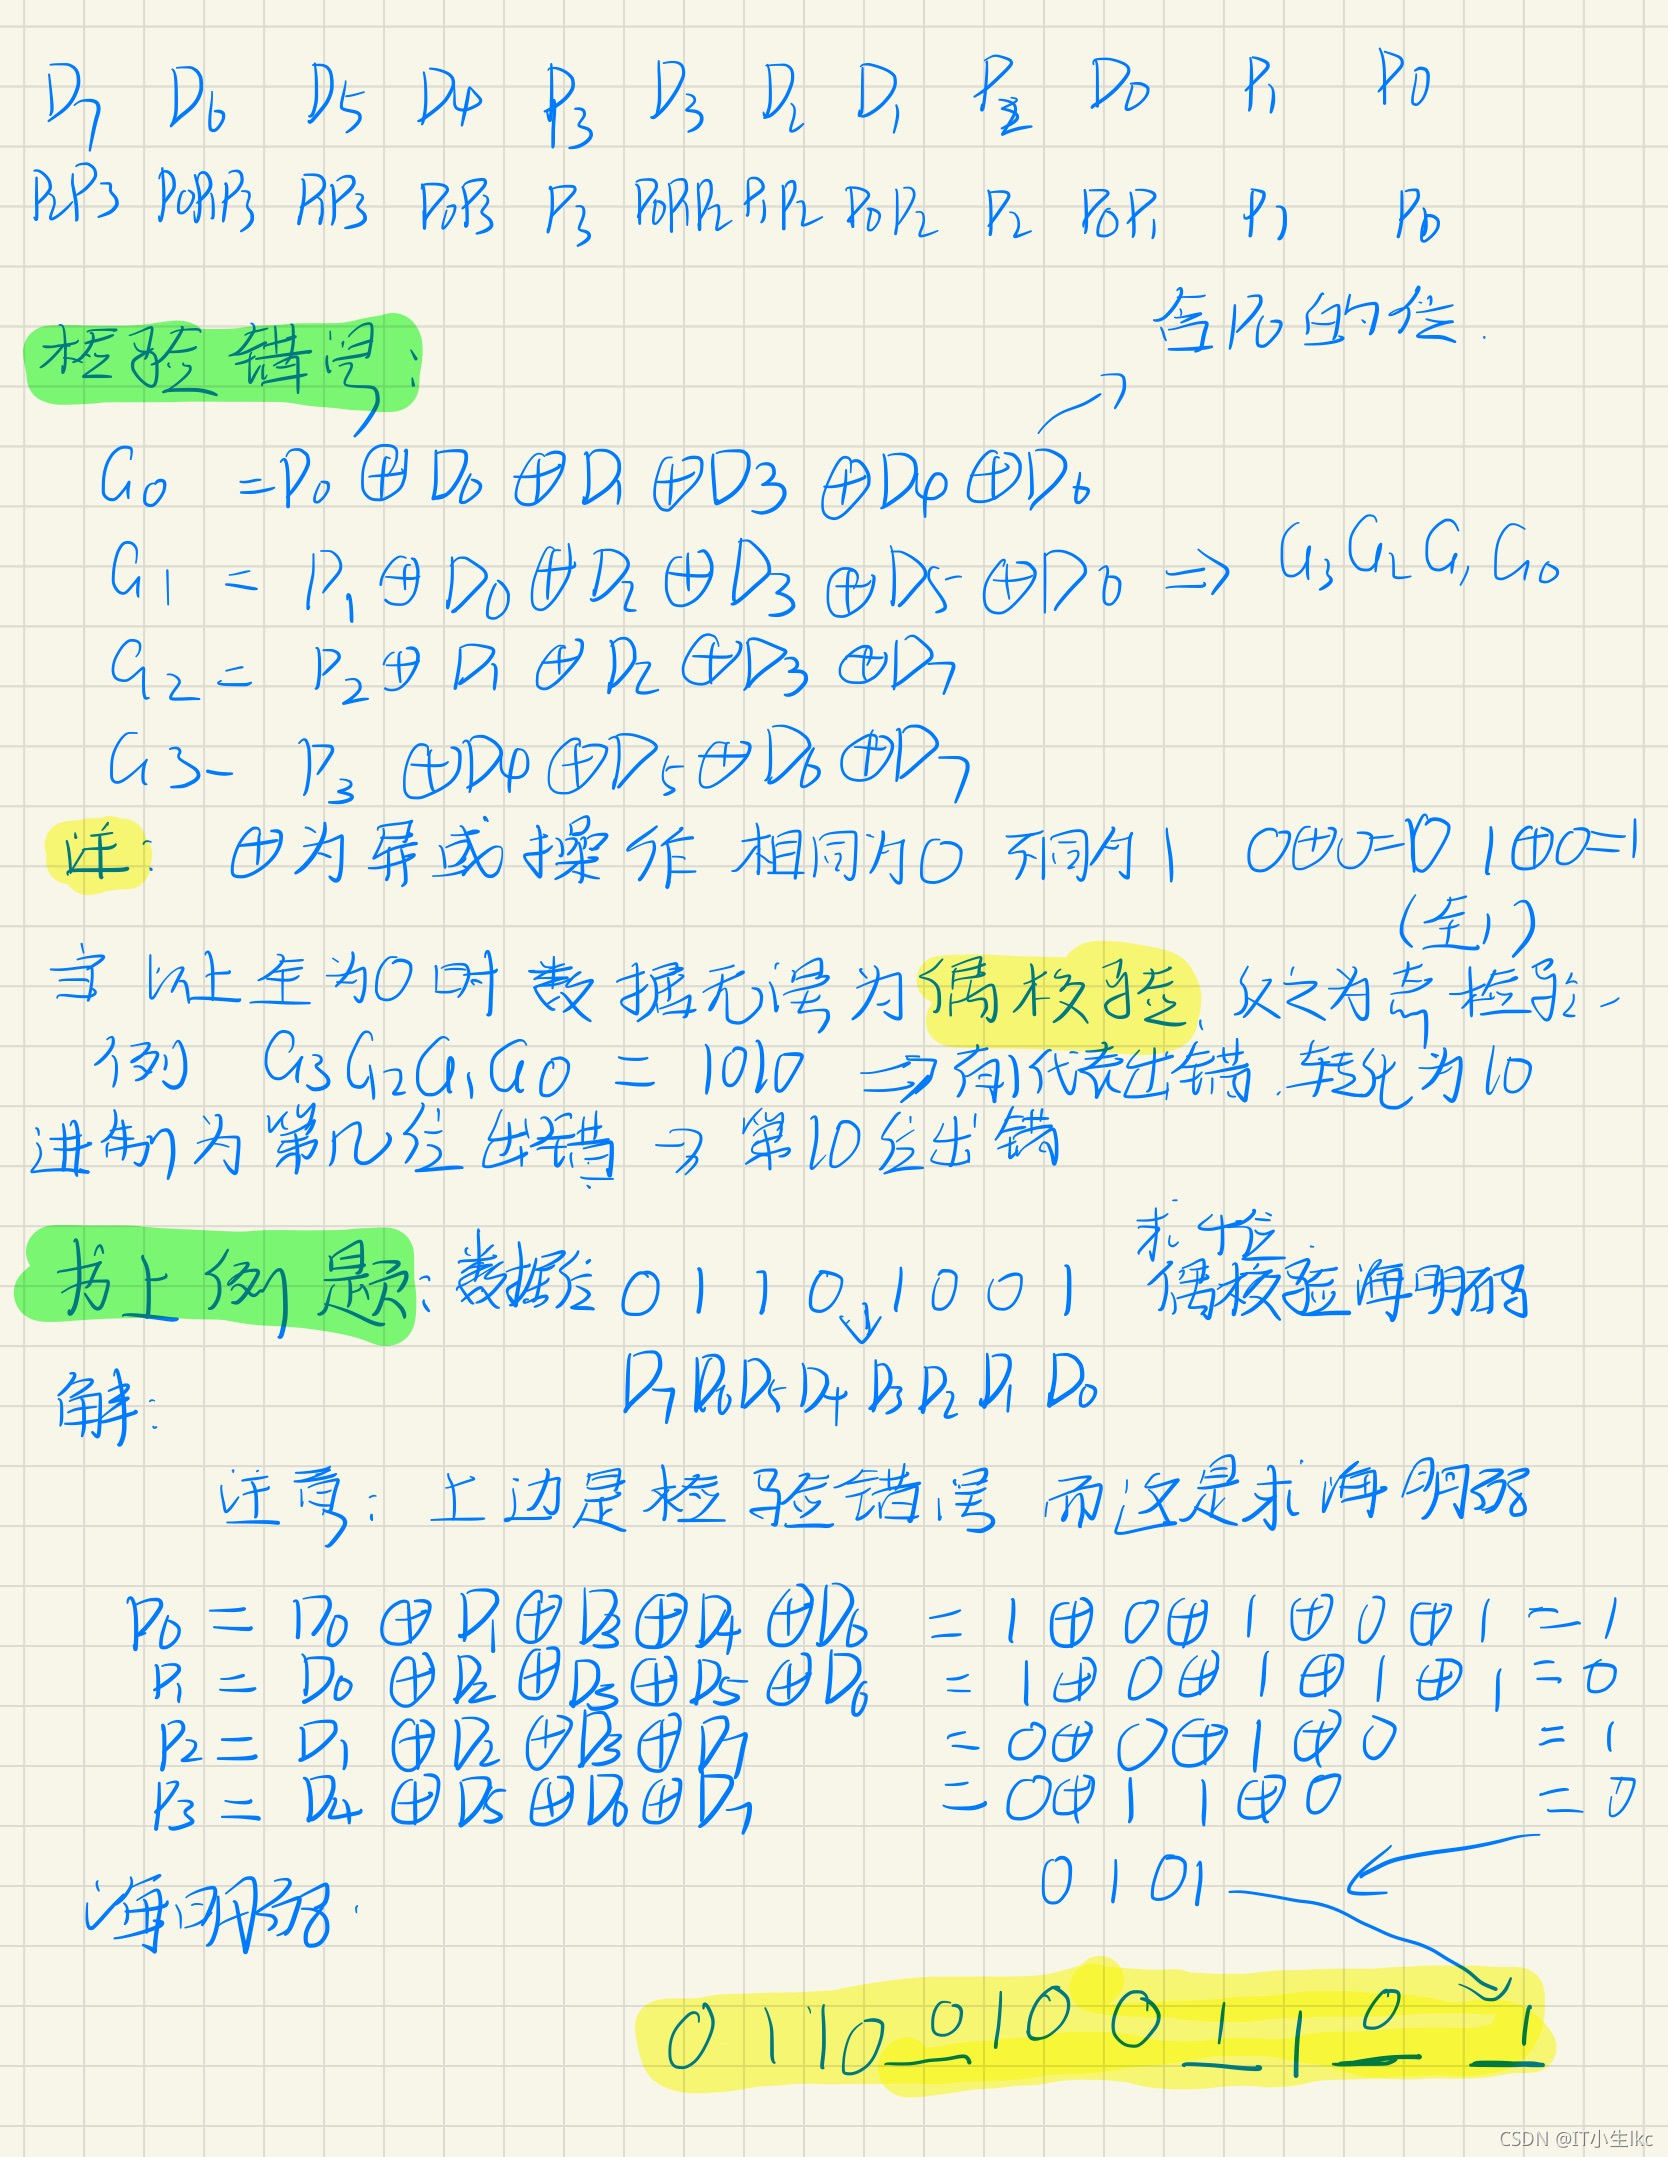 D7 D6 D5 D4 P3 D3 D2 D1 P2 D0 P1 P0
P2P3 P0P1P3 P1P3 P0P3 P3 P0P1P2 P1P2 P0P2 P2 P0P1 P1 P0
含P0的位.
检验错误:
G0 =P0⊕D0⊕D1⊕D3⊕D4⊕D6
G1 = P1⊕D0⊕D2⊕D3⊕D5⊕D6 ⇒ G3G2G1G0
G2 = P2⊕D1⊕D2⊕D3⊕D7
G3- P3⊕D4⊕D5⊕D6⊕D7
注: ⊕为异或操作 相同为0 不同为1 0⊕0=0 1⊕0=1
(全1)
当以上全为0时数据无误为偶校验. 反之为奇检验-
例 G3G2G1G0 = 1010 ⇒有1代表出错.转化为10
进制为第几位出错→第10位出错
求4位
书上例题:数据位01101001 偶校验海明码
D7D6D5D4D3D2D1D0
解:
注意:上边是检验错误 而这是求海明码
P0 = D0⊕D1⊕D3⊕D4⊕D6 = 1⊕0⊕1⊕0⊕1=1
P1 = D0⊕D2⊕D3⊕D5⊕D6 = 1⊕0⊕1⊕1⊕1=0
P2 = D1⊕D2⊕D3⊕D7 =0⊕0⊕1⊕0 =1
P3 = D4⊕D5⊕D6⊕D7 =0⊕1 1⊕0 =0
0101
海明码.
011001001101
CSDN @IT小生lkc